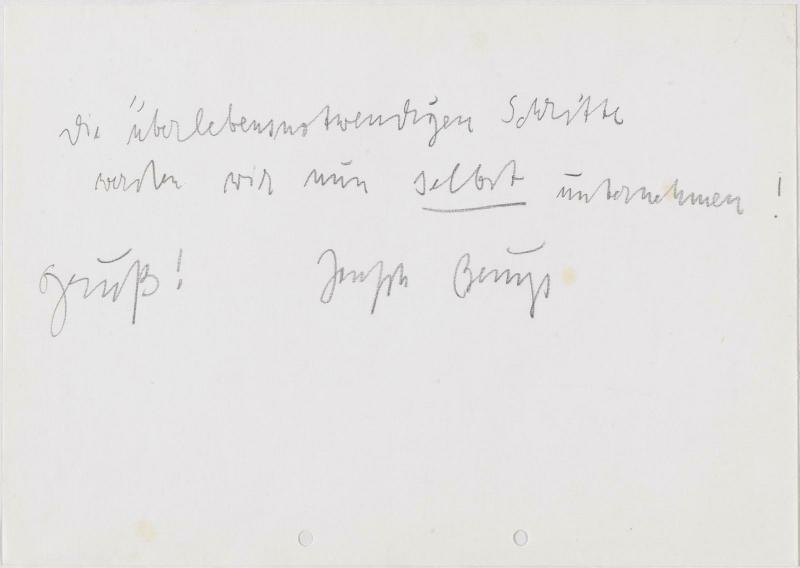 die überlebensnotwendigen Schritte
werden wir nun selbst unternehmen !
Gruß! Joseph Beuys